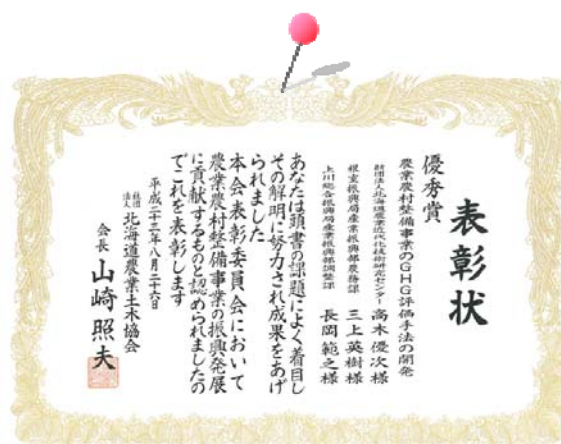 表彰状
優秀賞
農業農村整備事業のGHG評価手法の開発
財団法人北海道農業近代化技術研究センター 高木優次様
根室振興局産業振興部農務課 三上英樹様
上川総合振興局産業振興部調整課 長岡範之様
あなたは頭書の課題によく着目し
その解明に努力され成果をあげ
られました
本会表彰委員会において
農業農村整備事業の振興発展
に貢献するものと認められましたの
でこれを表彰します
平成二十三年八月二十六日
社団法人 北海道農業土木協会
会長 山崎照夫